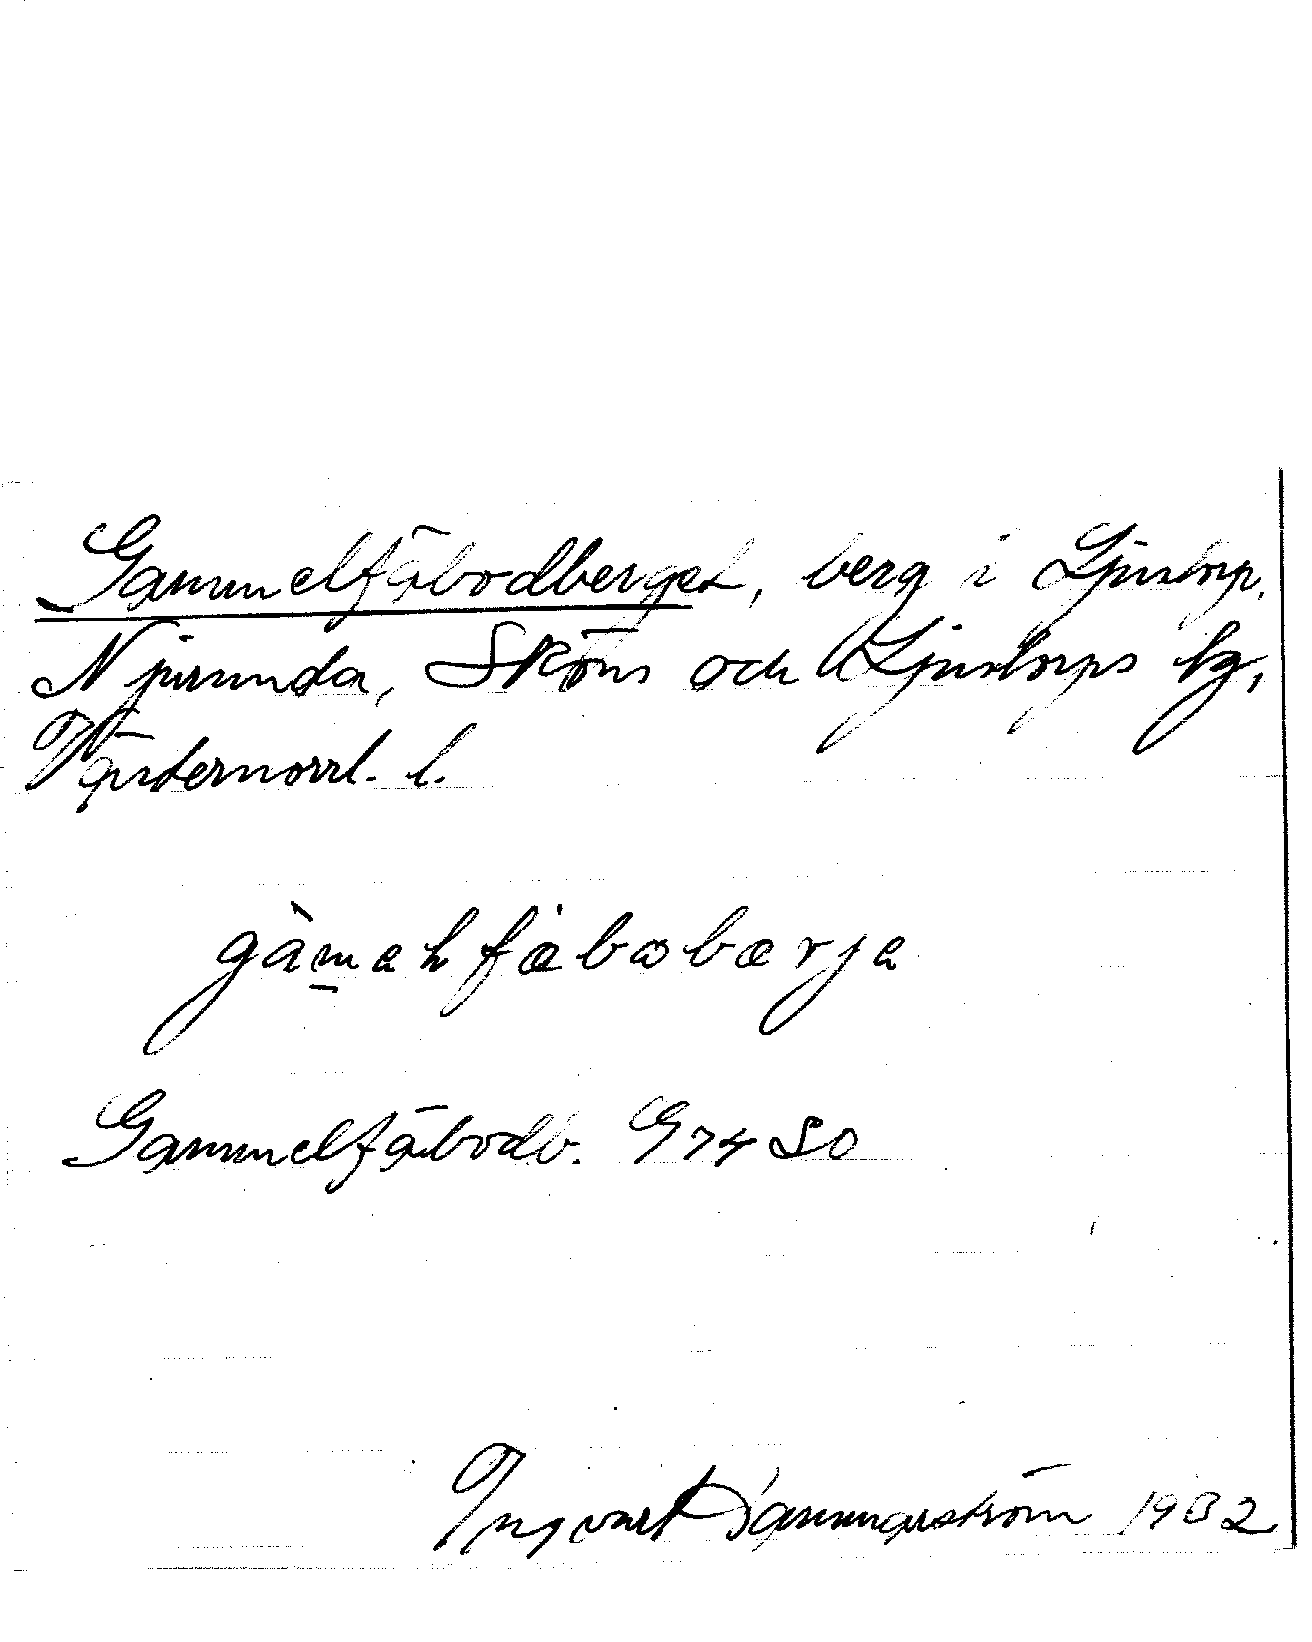 Gammelfäbodberget, berg i Ljustorp,
Njurunda, Sköns och Ljustorps tg,
Västernorrl. l.
gàmaɫfæbobærja
Gammelfäbodb. G74 SO
Ingvart Dammarström 1932